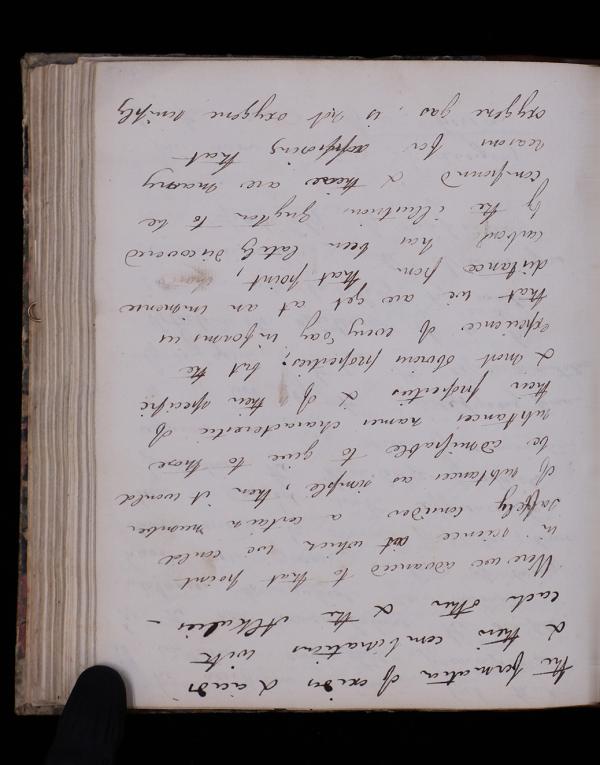 the formation of oxides & acids
& their combinations with
each other & the Alkalies –
Were we advanced to that point
in science at which we could
safely consider a certain number
of substances as simple, then it would
be admissable to give to those
substances names characteristic of
their properties & of their specific
& most obvious properties; but the
experience of every day informs us
that we are yet at an immense
distance from that point,
carbon has been lately discovered
by the illustrious Guyton to be
compound & there are many
reasons for supposing that
oxygene gas, is not oxygene simply